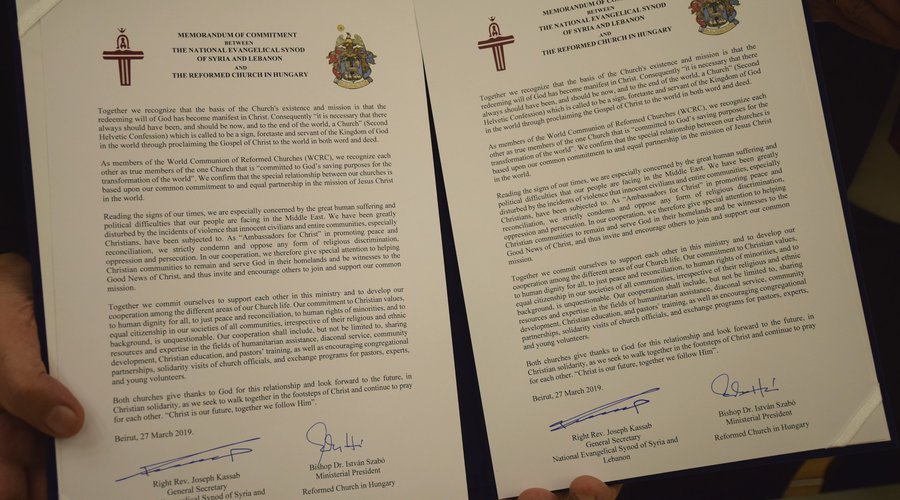 MEMORANDUM OF COMMITMENT
BETWEEN
THE NATIONAL EVANGELICAL SYNOD
OF SYRIA AND LEBANON
AND
THE REFORMED CHURCH IN HUNGARY
Together we recognize that the basis of the Church's existence and mission is that the
redeeming will of God has become manifest in Christ. Consequently "it is necessary that there
always should have been, and should be now, and to the end of the world, a Church" (Second
Helvetic Confession) which is called to be a sign, foretaste and servant of the Kingdom of God
in the world through proclaiming the Gospel of Christ to the world in both word and deed.
As members of the World Communion of Reformed Churches (WCRC), we recognize each
other as true members of the one Church that is "committed to God's saving purposes for the
transformation of the world". We confirm that the special relationship between our churches is
based upon our common commitment to and equal partnership in the mission of Jesus Christ
in the world.
Reading the signs of our times, we are especially concerned by the great human suffering and
political difficulties that our people are facing in the Middle East. We have been greatly
disturbed by the incidents of violence that innocent civilians and entire communities, especially
Christians, have been subjected to. As "Ambassadors for Christ" in promoting peace and
reconciliation, we strictly condemn and oppose any form of religious discrimination,
oppression and persecution. In our cooperation, we therefore give special attention to helping
Christian communities to remain and serve God in their homelands and be witnesses to the
Good News of Christ, and thus invite and encourage others to join and support our common
mission.
Together we commit ourselves to support each other in this ministry and to develop our
cooperation among the different areas of our Church life. Our commitment to Christian values,
to human dignity for all, to just peace and reconciliation, to human rights of minorities, and to
equal citizenship in our societies of all communities, irrespective of their religious and ethnic
background, is unquestionable. Our cooperation shall include, but not be limited to, sharing
resources and expertise in the fields of humanitarian assistance, diaconal service, community
development, Christian education, and pastors' training, as well as encouraging congregational
partnerships, solidarity visits of church officials, and exchange programs for pastors, experts,
and young volunteers.
Both churches give thanks to God for this relationship and look forward to the future, in
Christian solidarity, as we seek to walk together in the footsteps of Christ and continue to pray
for each other. "Christ is our future, together we follow Him".
Beirut, 27 March 2019.
Right Rev. Joseph Kassab
General Secretary
Evangelical Synod of Syria and
Bishop Dr. István Szabó
Ministerial President
Reformed Church in Hungary
MEMORANDUM OF COMMITMENT
BETWEEN
THE NATIONAL EVANGELICAL SYNOD
OF SYRIA AND LEBANON
AND
THE REFORMED CHURCH IN HUNGARY
Together we recognize that the basis of the Church's existence and mission is that the
redeeming will of God has become manifest in Christ. Consequently "it is necessary that there
always should have been, and should be now, and to the end of the world, a Church" (Second
Helvetic Confession) which is called to be a sign, foretaste and servant of the Kingdom of God
in the world through proclaiming the Gospel of Christ to the world in both word and deed.
As members of the World Communion of Reformed Churches (WCRC), we recognize each
other as true members of the one Church that is "committed to God's saving purposes for the
transformation of the world". We confirm that the special relationship between our churches is
based upon our common commitment to and equal partnership in the mission of Jesus Christ
in the world.
Reading the signs of our times, we are especially concerned by the great human suffering and
political difficulties that our people are facing in the Middle East. We have been greatly
disturbed by the incidents of violence that innocent civilians and entire communities, especially
Christians, have been subjected to. As "Ambassadors for Christ" in promoting peace and
reconciliation, we strictly condemn and oppose any form of religious discrimination,
oppression and persecution. In our cooperation, we therefore give special attention to helping
Christian communities to remain and serve God in their homelands and be witnesses to the
Good News of Christ, and thus invite and encourage others to join and support our common
mission.
Together we commit ourselves to support each other in this ministry and to develop our
cooperation among the different areas of our Church life. Our commitment to Christian values,
to human dignity for all, to just peace and reconciliation, to human rights of minorities, and to
equal citizenship in our societies of all communities, irrespective of their religious and ethnic
background, is unquestionable. Our cooperation shall include, but not be limited to, sharing
resources and expertise in the fields of humanitarian assistance, diaconal service, community
development, Christian education, and pastors' training, as well as encouraging congregational
partnerships, solidarity visits of church officials, and exchange programs for pastors, experts,
and young volunteers.
Both churches give thanks to God for this relationship and look forward to the future, in
Christian solidarity, as we seek to walk together in the footsteps of Christ and continue to pray
for each other. "Christ is our future, together we follow Him".
Beirut, 27 March 2019.
Right Rev. Joseph Kassab
General Secretary
National Evangelical Synod of Syria and
Lebanon
Bishop Dr. István Szabó
Ministerial President
Reformed Church in Hungary